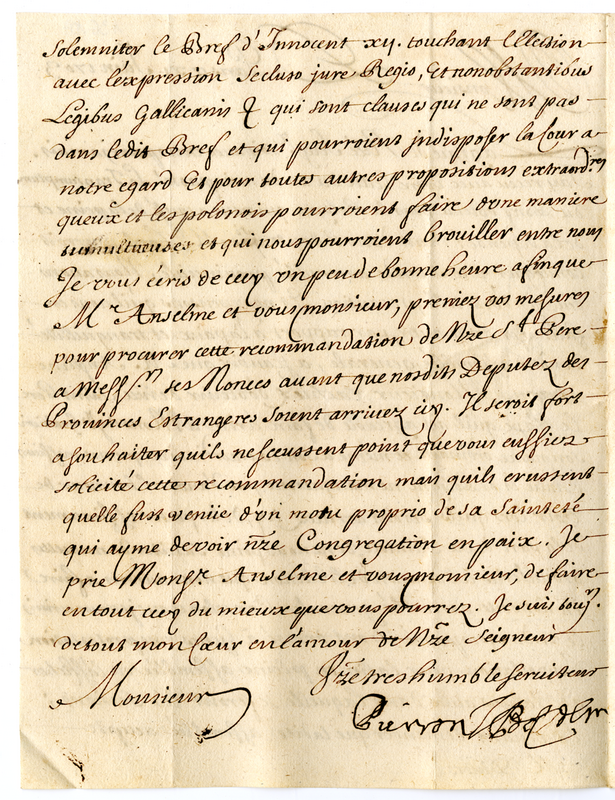 Solemniter le Bref d'Innocent xij. touchant l'Election
avec l'expression Secluso jure Regio, Et nonobstantibus
Legibus Gallicanis & qui sont clauses qui ne sont pas
dans ledit Bref et qui pourroient jndisposer la Cour a
notre egard Et pour toutes autres propositions extraord.res
queux et les polonois pourroient faire d'vne maniere
tumultueuses et qui nous pourroient brouiller entre nous
Je vous écris de cecy vn peu de bonne heure afin que
Mr. Anselme et vous monsieur, preniez vos mesures
pour procurer cette recommandation de Nre St. Pere
a Messrs ses Nonces auant que nosdits Deputez des
Provinces Estrangeres soient arrivez icy. Il seroit fort
a souhaiter quils ne sceussent point que vous eussiez
solicité cette recommandation mais quils crussent
quelle fust veniie d'vn motu proprio de sa Sainteté
qui ayme de voir nre Congregation en paix. Je
prie Monsr. Anselme et vous monsieur, de faire
en tout cecy du mieux que vous pourrez. Je suis toujrs.
de tout mon Cœur en l'amour de Nre Seigneur
Monsieur
Vre tres humble seruiteur
Pierron